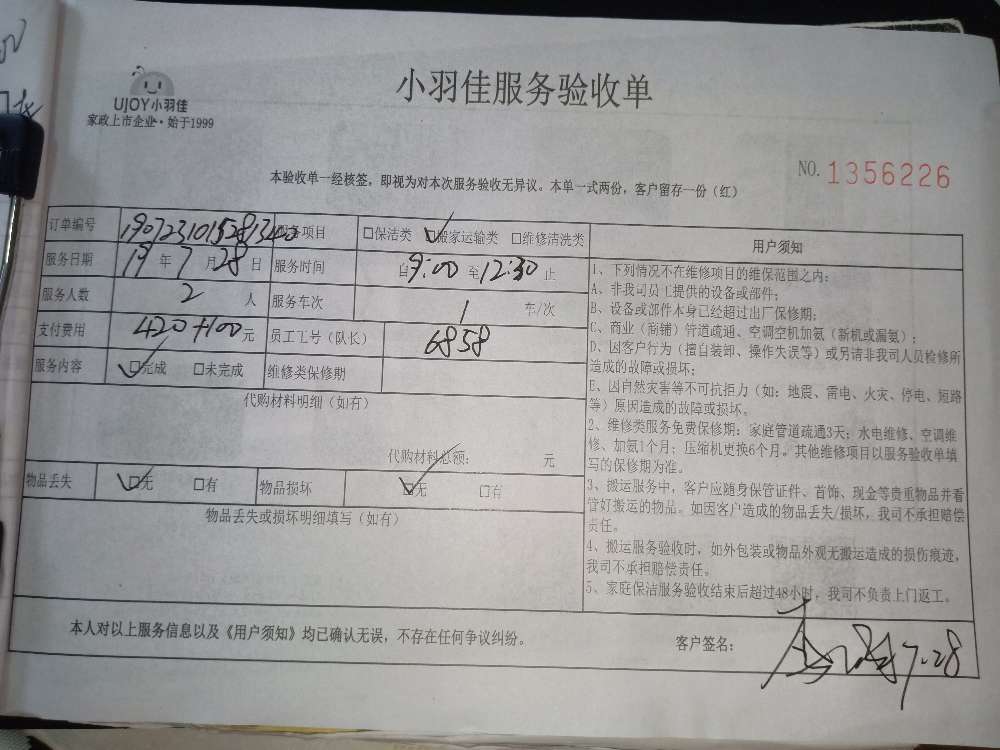 UJOY小羽佳
家政上市企业·始于1999
小羽佳服务验收单
NO. 1356226
本验收单一经核签，即视为对本次服务验收无异议。本单一式两份，客户留存一份（红）
订单编号 项目 □保洁类 ☑搬家运输类 □维修清洗类
服务日期 19年7月28日 服务时间 自9:00至12:30止
服务人数 2人 服务车次 1 车/次
支付费用 420+100元 员工工号（队长） 6858
服务内容 ☑完成 □未完成 维修类保修期
代购材料明细（如有）
代购材料总额： 元
物品丢失 ☑无 □有 物品损坏 ☑无 □有
物品丢失或损坏明细填写（如有）
用户须知
1、下列情况不在维修项目的维保范围之内：
A、非我司员工提供的设备或部件；
B、设备或部件本身已经超过出厂保修期；
C、商业（商铺）管道疏通、空调空机加氨（新机或漏氨）；
D、因客户行为（擅自装卸、操作失误等）或另请非我司人员检修所
造成的故障或损坏；
E、因自然灾害等不可抗拒力（如：地震、雷电、火灾、停电、短路
等）原因造成的故障或损坏。
2、维修类服务免费保修期：家庭管道疏通3天；水电维修、空调维
修、加氨1个月；压缩机更换6个月。其他维修项目以服务验收单填
写的保修期为准。
3、搬运服务中，客户应随身保管证件、首饰、现金等贵重物品并看
管好搬运的物品。如因客户造成的物品丢失/损坏，我司不承担赔偿
责任。
4、搬运服务验收时，如外包装或物品外观无搬运造成的损伤痕迹，
我司不承担赔偿责任。
5、家庭保洁服务验收结束后超过48小时，我司不负责上门返工。
本人对以上服务信息以及《用户须知》均已确认无误，不存在任何争议纠纷。 客户签名： 7.28